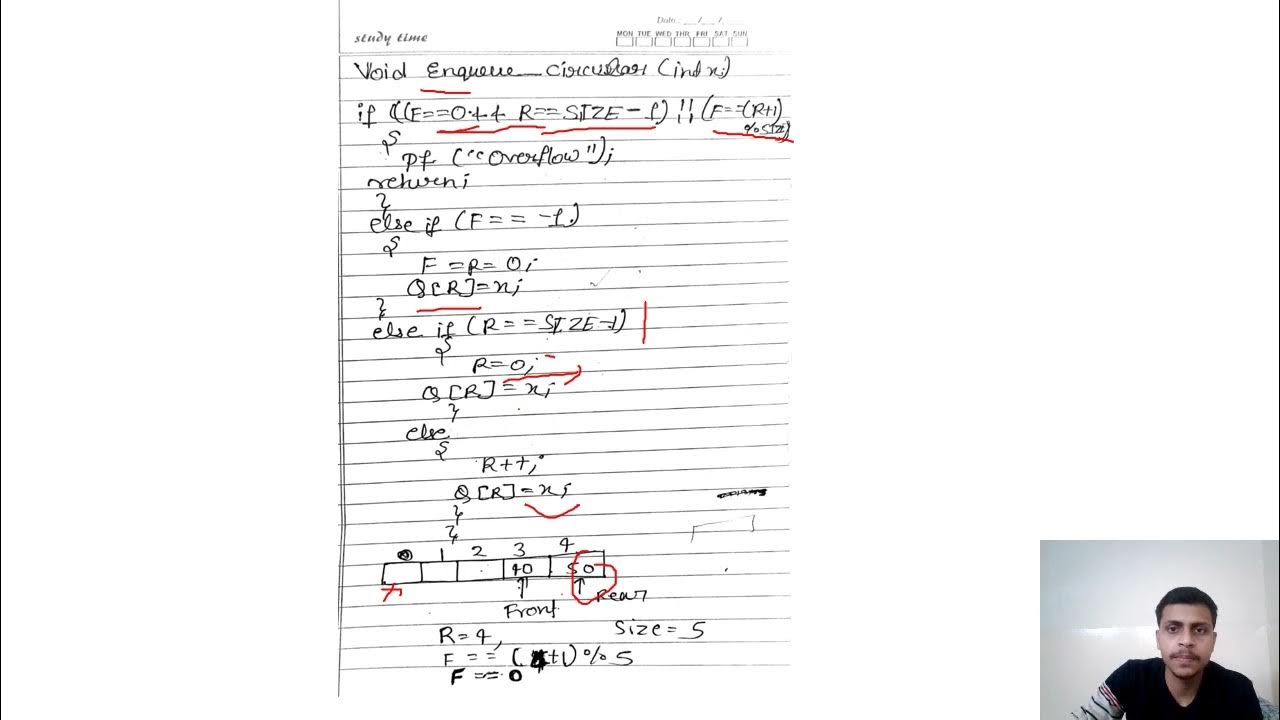 Date : __/__/__
study time
MON TUE WED THR FRI SAT SUN
Void Enqueue_circular (int x;)
if ((F==0 && R==SIZE-1) || (F==(R+1)
%SIZE)
{
pf ("Overflow");
return;
}
else if (F== -1)
{
F =R= 0;
Q[R]=x;
}
else if (R==SIZE-1)
{
R=0;
Q[R]=x;
}
else
{
R++;
Q[R]=x;
}
}
0 1 2 3 4
40 50
Front Rear
R=4, Size=5
F == (4+1) % 5
F == 0